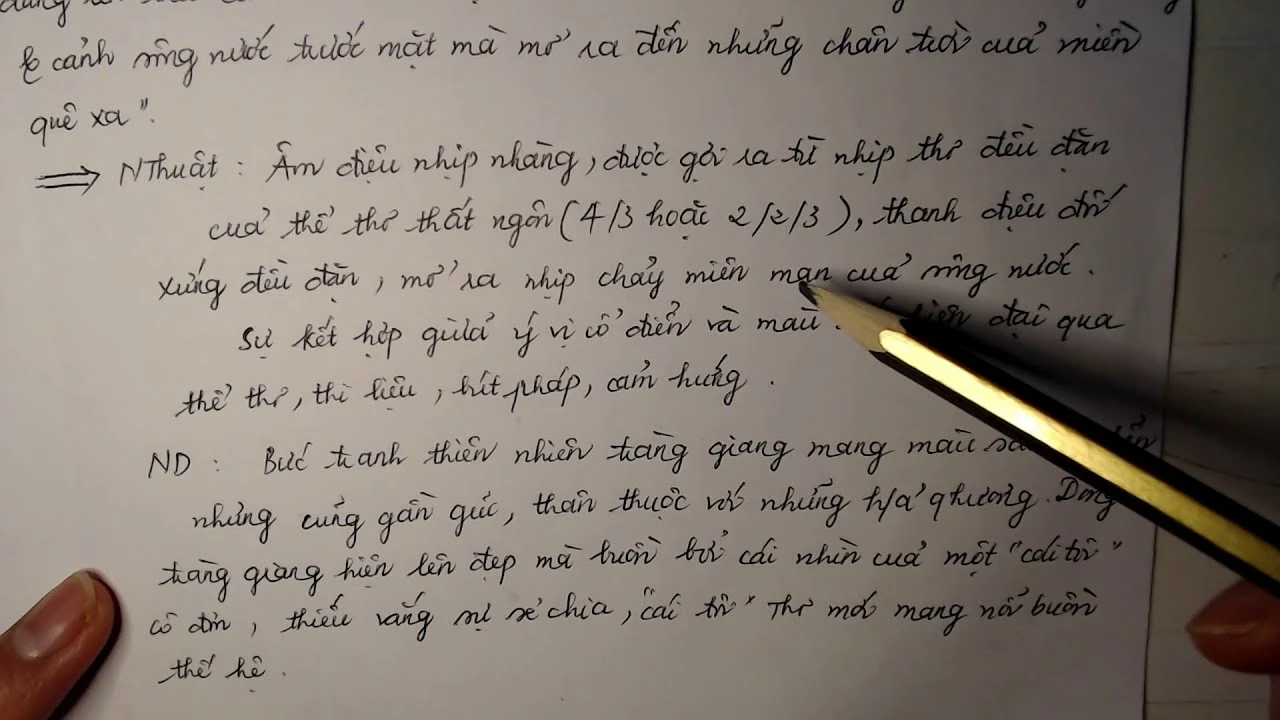 & cảnh sông nước trước mặt mà mở ra đến những chân trời của miền
quê xa".
⇒ NThuật : Âm điệu nhịp nhàng, được gợi ra từ nhịp thơ đều đặn
của thể thơ thất ngôn (4/3 hoặc 2/2/3), thanh điệu đối
xứng đều đặn, mở ra nhịp chảy miên man của sông nước.
Sự kết hợp giữa ý vị cổ điển và màu hiện đại qua
thể thơ, thi liệu, bút pháp, cảm hứng.
ND : Bức tranh thiên nhiên tràng giang mang màu
nhưng cũng gần gũi, thân thuộc với những h/ả qhương. Dòng
tràng giang hiện lên đẹp mà buồn bởi cái nhìn của một "cái tôi"
cô đơn, thiếu vắng sự sẻ chia, "cái tôi" Thơ mới mang nỗi buồn
thế hệ.